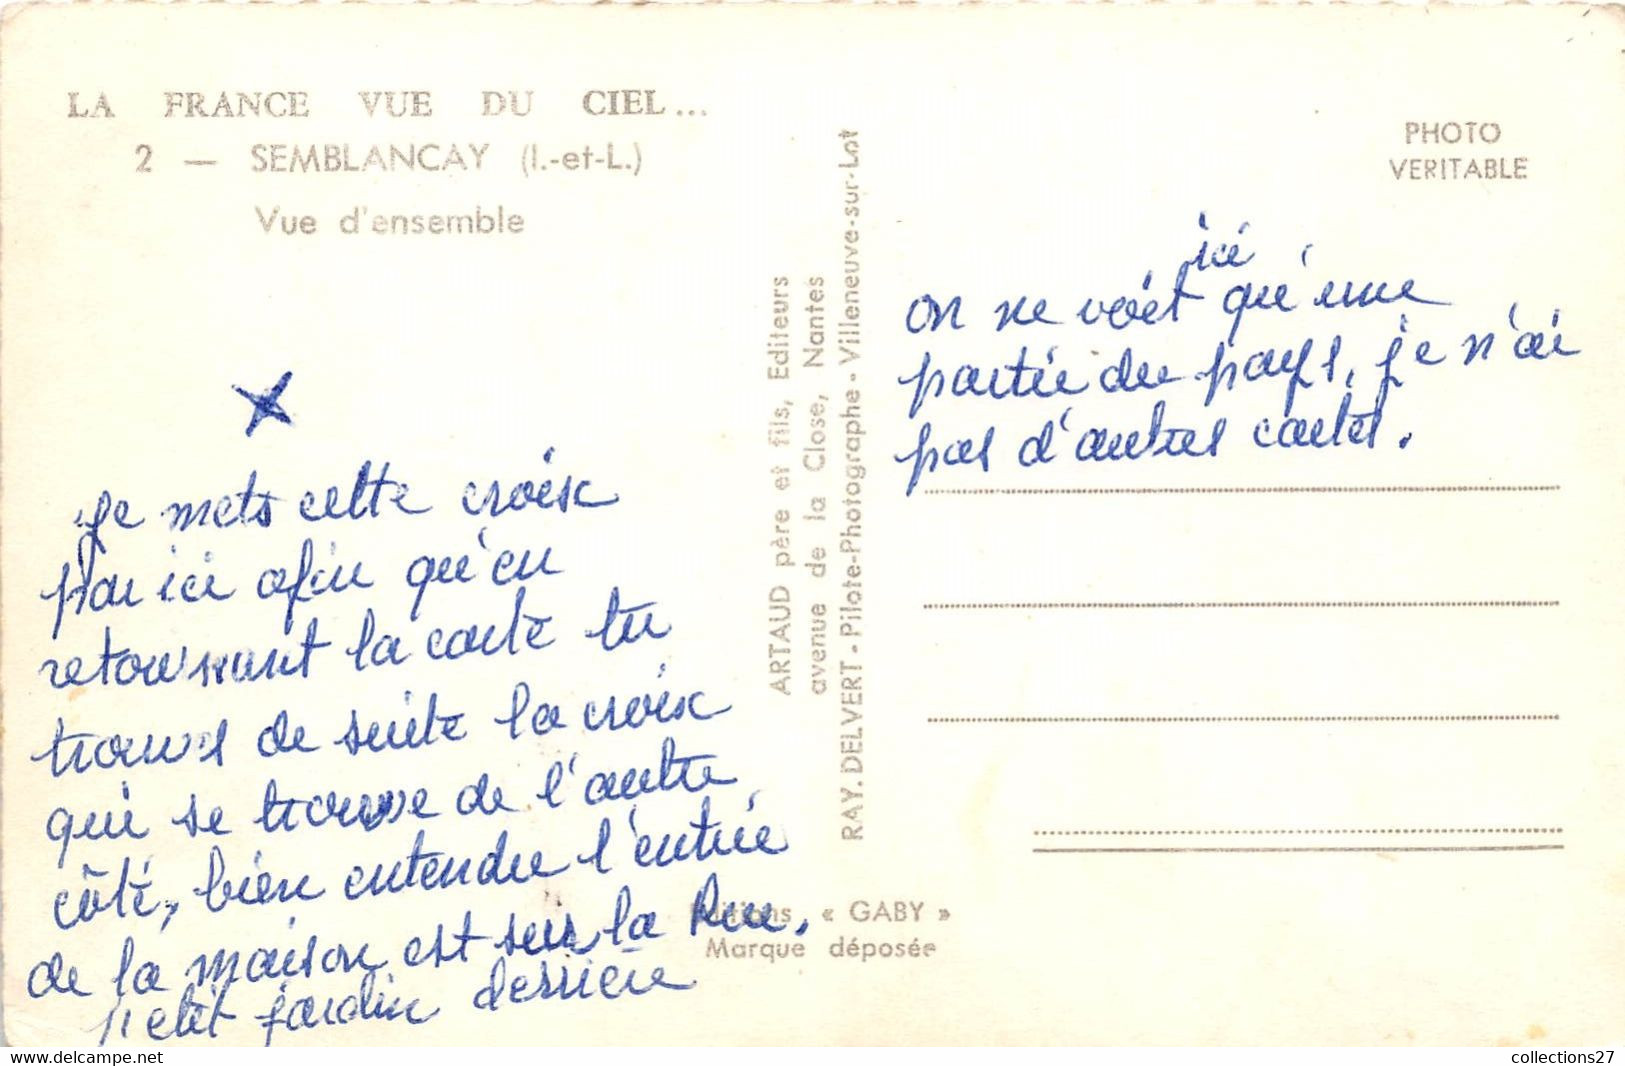 LA FRANCE VUE DU CIEL...
2 — SEMBLANCAY (I.-et-L.)
Vue d'ensemble
Je mets cette croix
par ici afin qu'en
retournant la carte tu
trouves de suite la croix
qui se trouve de l'autre
côté, bien entendu l'entrée
de la maison est sur la Rue.
petit jardin derrière
ARTAUD père et fils, Editeurs
avenue de la Close, Nantes
RAY. DELVERT - Pilote-Photographe - Villeneuve-sur-Lot
Editions « GABY »
Marque déposée
PHOTO
VERITABLE
ici
on ne voit qu'une
partie du pays, je n'ai
pas d'autres cartes.
collections27